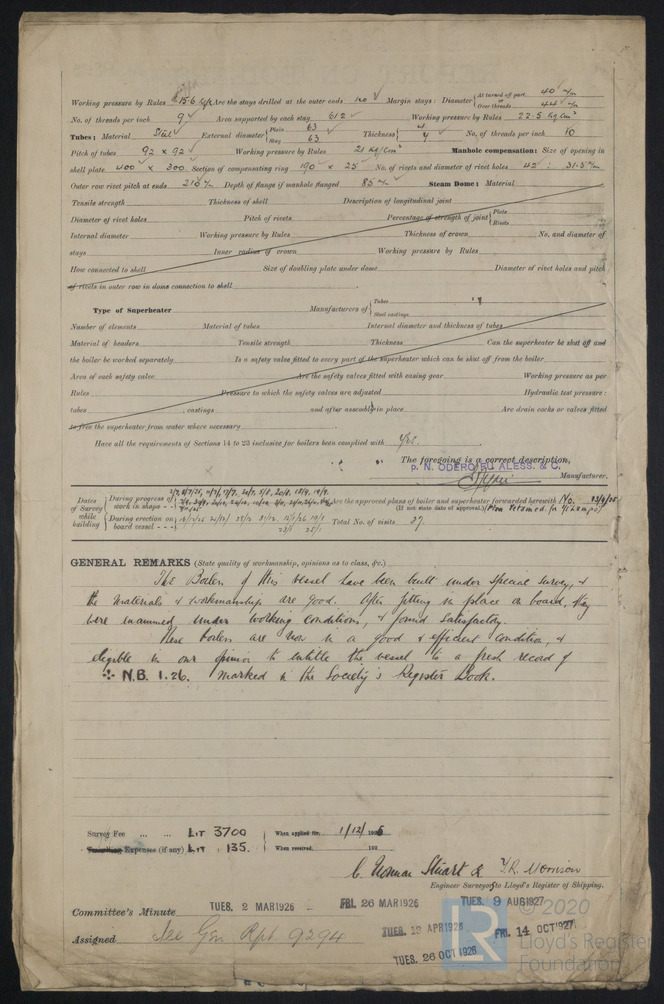 Working pressure by Rules 15.6 Are the stays drilled at the outer ends no Margin stays: Diameter At turned off part, or Over threads 40 m/m 44 m/m
No. of threads per inch 9 Area supported by each stay 612 Working pressure by Rules 22.5 kg/cm²
Tubes: Material Steel External diameter Plain 63 Stay 63 Thickness 4 No. of threads per inch 10
Pitch of tubes 92 x 92 Working pressure by Rules 21 kg/cm² Manhole compensation: Size of opening in
shell plate 400 x 300 Section of compensating ring 190 x 25 No. of rivets and diameter of rivet holes 42 : 31.5 m/m
Outer row rivet pitch at ends 210 m/m Depth of flange if manhole flanged 85 m/m Steam Dome: Material
Tensile strength Thickness of shell Description of longitudinal joint
Diameter of rivet holes Pitch of rivets Percentage of strength of joint Plate Rivets
Internal diameter Working pressure by Rules Thickness of crown No. and diameter of
stays Inner radius of crown Working pressure by Rules
How connected to shell Size of doubling plate under dome Diameter of rivet holes and pitch
of rivets in outer row in dome connection to shell
Type of Superheater Manufacturers of Tubes Steel castings
Number of elements Material of tubes Internal diameter and thickness of tubes
Material of headers Tensile strength Thickness Can the superheater be shut off and
the boiler be worked separately Is a safety valve fitted to every part of the superheater which can be shut off from the boiler
Area of each safety valve Are the safety valves fitted with easing gear Working pressure as per
Rules Pressure to which the safety valves are adjusted Hydraulic test pressure:
tubes castings and after assembly in place Are drain cocks or valves fitted
to free the superheater from water where necessary
Have all the requirements of Sections 14 to 23 inclusive for boilers been complied with Yes.
The foregoing is a correct description,
p. N. ODERO fu ALESS. & C.
Manufacturer.
Dates of Survey while building During progress of work in shops - - Are the approved plans of boiler and superheater forwarded herewith No.
(If not state date of approval.)
During erection on board vessel - - - Total No. of visits 27.
GENERAL REMARKS (State quality of workmanship, opinions as to class, &c.)
The Boilers of this vessel have been built under special survey, &
the materials & workmanship are good. After fitting in place on board, they
were examined under working conditions, & found satisfactory.
These boilers are now in a good & efficient condition, &
eligible in our opinion to entitle the vessel to a fresh record of
N.B. 1.26. marked in the Society's Register Book.
Survey Fee ... ... Lit 3700 When applied for, 1/12/1925
Travelling Expenses (if any) Lit 135. When received, 192
C. Norman Stuart & T.R. Morrison
Engineer Surveyors to Lloyd's Register of Shipping.
Committee's Minute TUES. 2 MAR 1926 FRI. 26 MAR 1926 TUES. 9 AUG 1927
TUES. 13 APR 1926 FRI. 14 OCT 1927
Assigned See Gen Rpt 9294
TUES. 26 OCT 1926
LR
© 2020
Lloyd's Register
Foundation